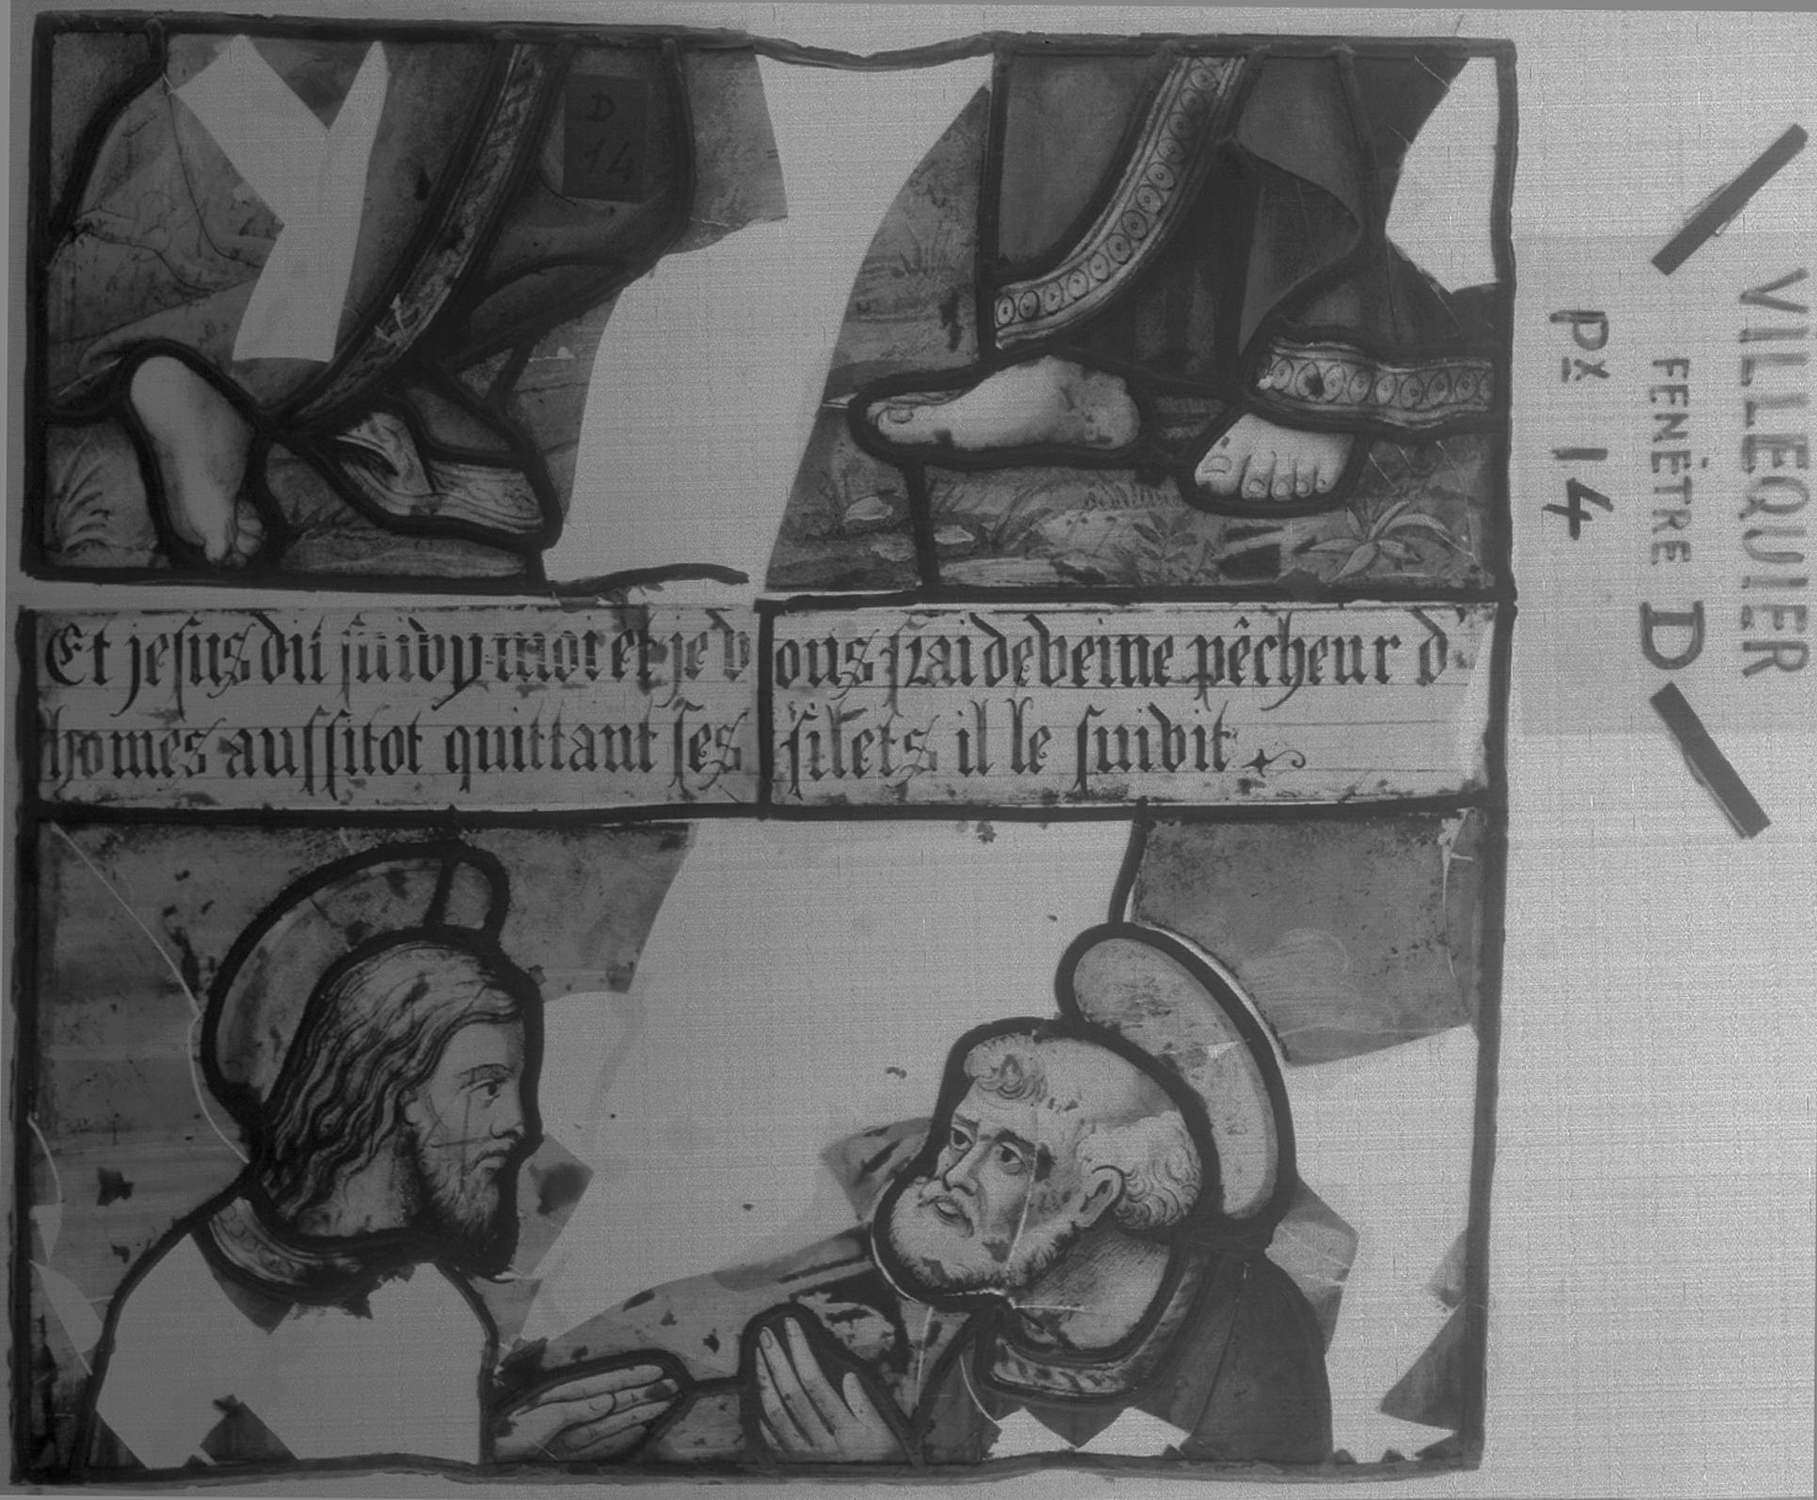 D
14
Et jesus dit suivy moi et je vous frai deveine pêcheur d'
homes aussitot quittant ses filets il le suivit
VILLEQUIER
FENÊTRE D
Px 14